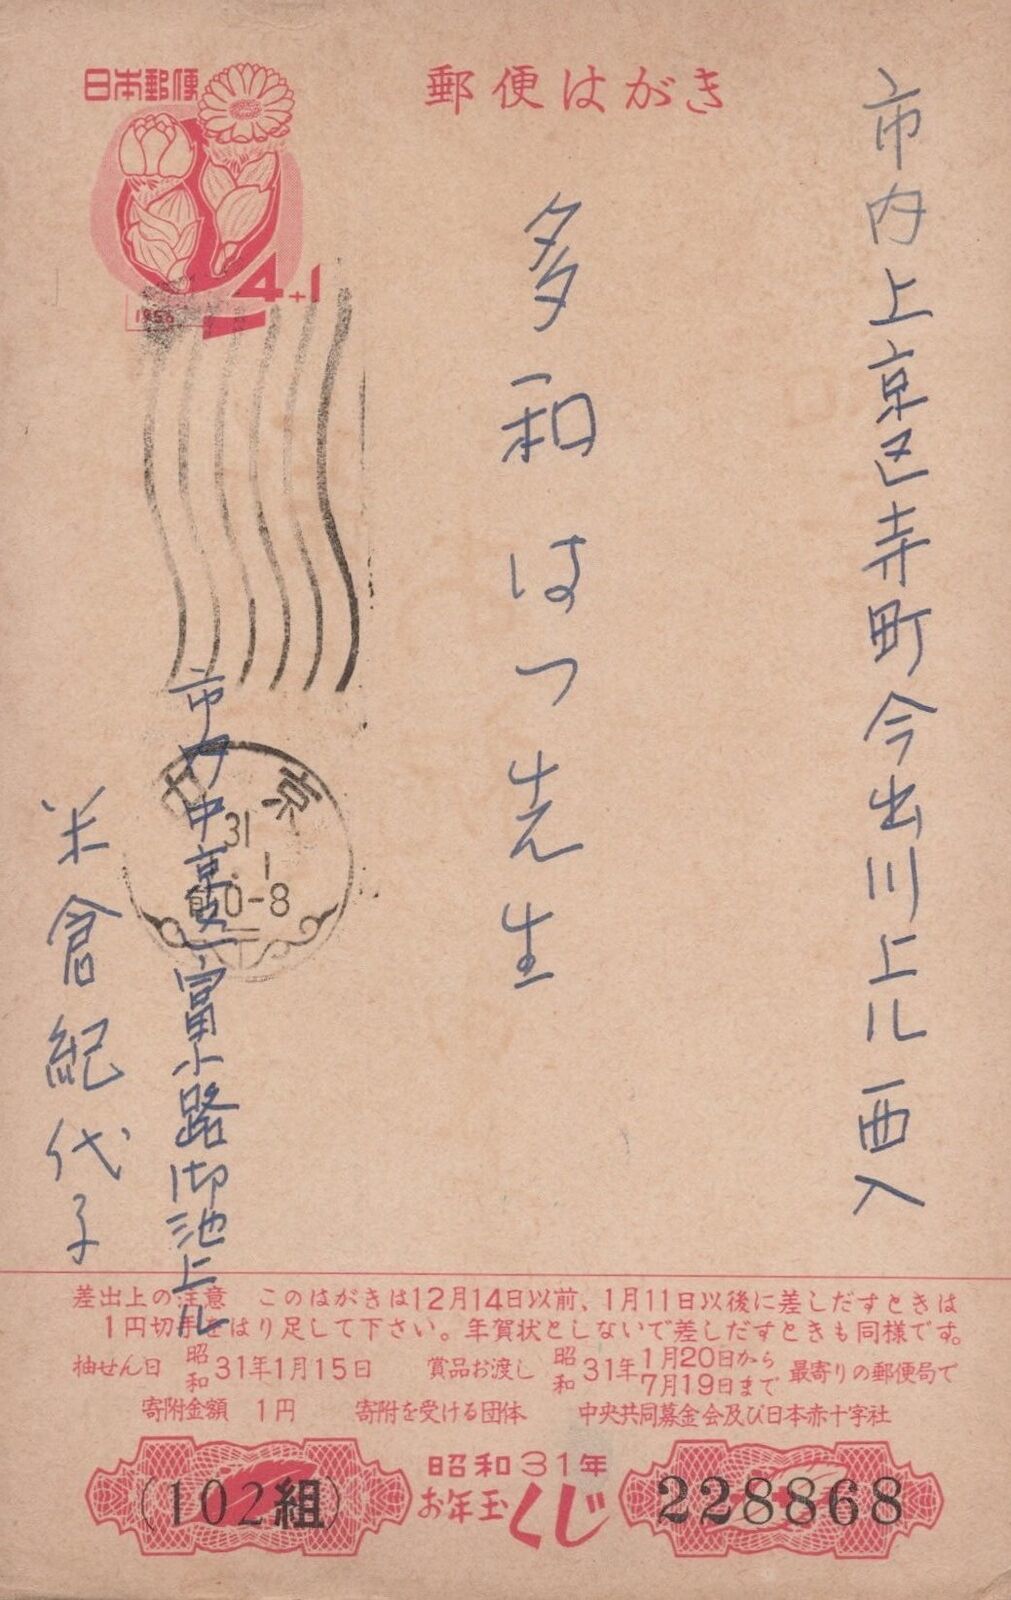 郵便はがき
日本郵便
4+1
1956
市内上京区寺町今出川上ル西入
多和はつ先生
中京
31
1
前0-8
市内中京区富小路御池上ル
米倉紀代子
差出上の注意 このはがきは12月14日以前、1月11日以後に差しだすときは
1円切手をはり足して下さい。年賀状としないで差しだすときも同様です。
抽せん日 昭和31年1月15日 賞品お渡し 昭和31年1月20日から7月19日まで 最寄りの郵便局で
寄附金額 1円 寄附を受ける団体 中央共同募金会及び日本赤十字社
昭和31年
お年玉くじ
(102組)
228868